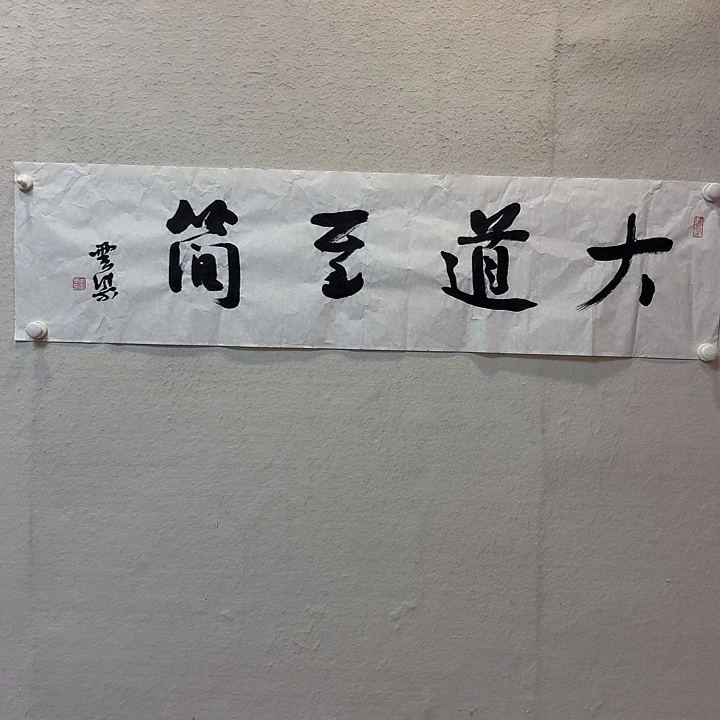 大道至简